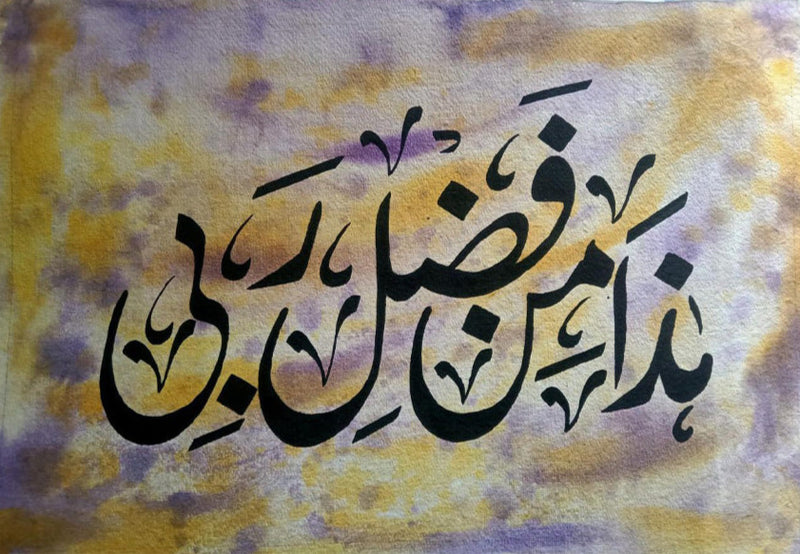 هٰذَا مِنْ فَضْلِ رَبِّي